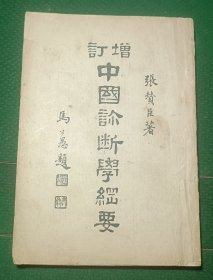 增訂
中國診斷學綱要
張贊臣著
馬公愚題